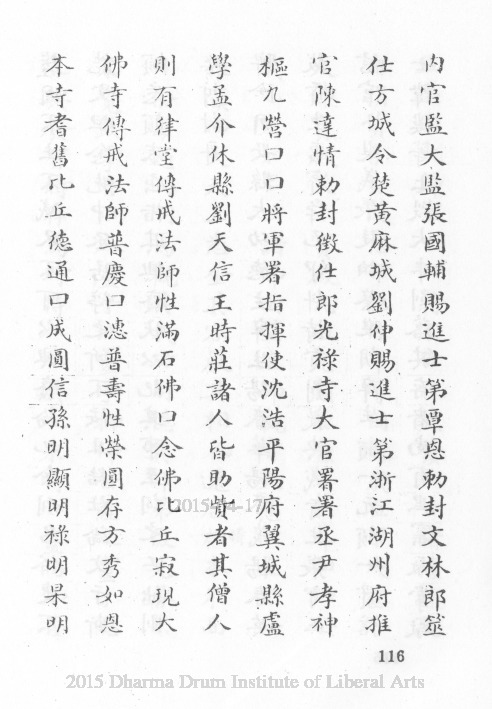 內官監大監張國輔賜進士第覃恩勅封文林郎筮
仕方城令楚黃麻城劉伸賜進士第浙江湖州府推
官陳達情勅封徵仕郎光祿寺大官署署丞尹孝神
樞九營口口將軍署指揮使沈浩平陽府翼城縣盧
學孟介休縣劉天信王時莊諸人皆助貲者其僧人
則有律堂傳戒法師性滿石佛口念佛比丘寂現大
佛寺傳戒法師普慶口漶普壽性榮圓存方秀如恩
本寺耆舊比丘德通口成圓信孫明顯明祿明杲明
116
2015-04-17
2015 Dharma Drum Institute of Liberal Arts